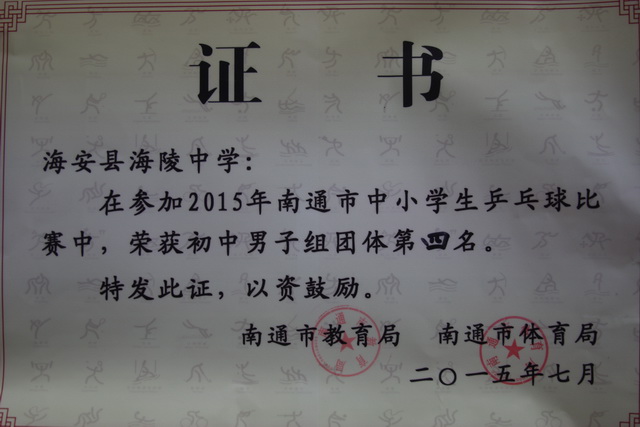 证书
海安县海陵中学：
在参加2015年南通市中小学生乒乓球比
赛中，荣获初中男子组团体第四名。
特发此证，以资鼓励。
南通市教育局 南通市体育局
二〇一五年七月